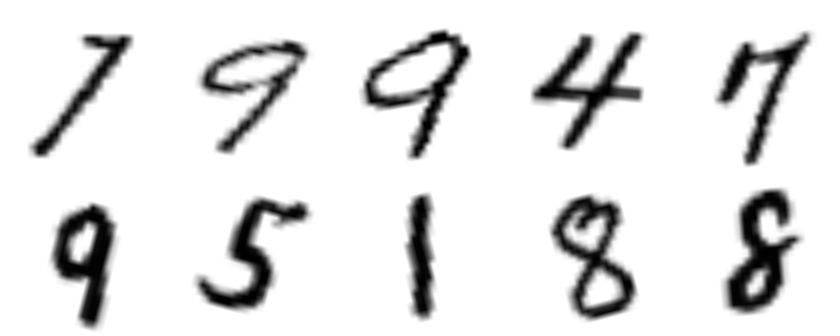 7 9 9 4 7
9 5 1 8 8